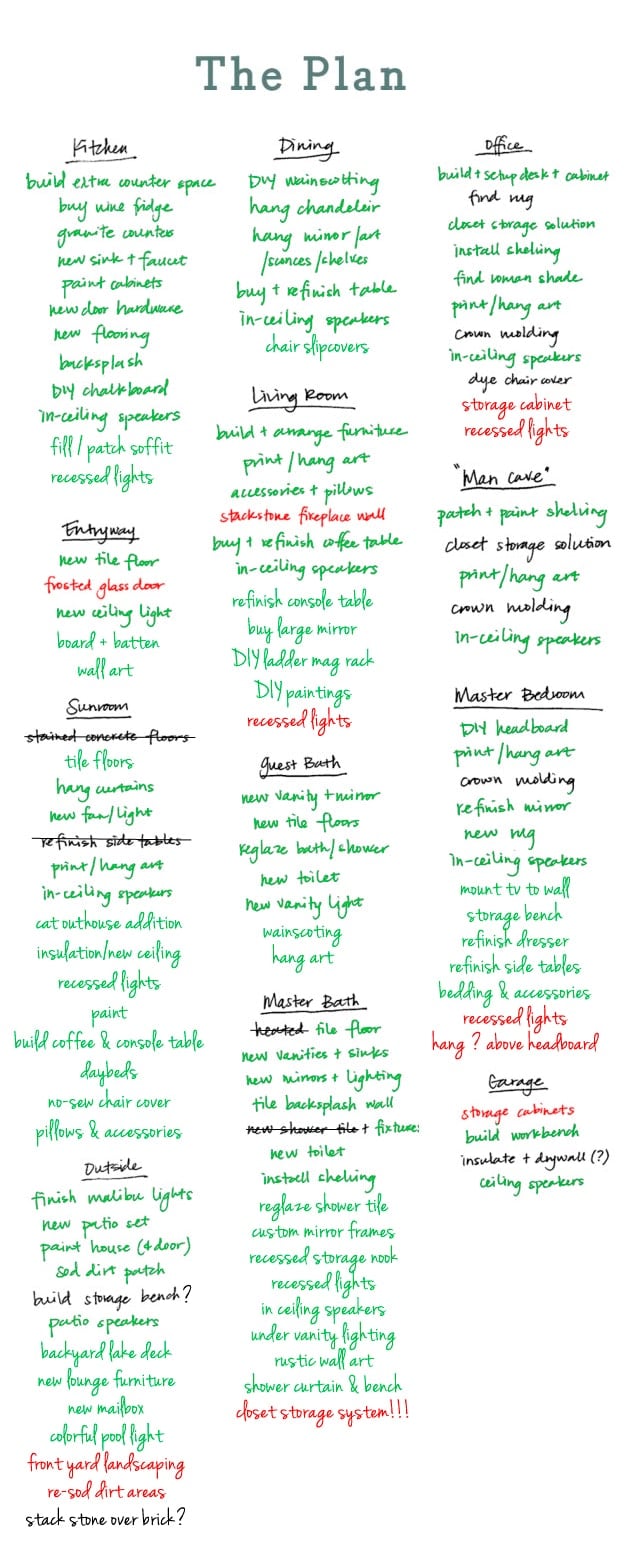 The Plan
Kitchen
build extra counter space
buy wine fridge
granite counters
new sink + faucet
paint cabinets
new door hardware
new flooring
backsplash
DIY chalkboard
in-ceiling speakers
fill / patch soffit
recessed lights
Entryway
new tile floor
frosted glass door
new ceiling light
board + batten
wall art
Sunroom
stained concrete floors
tile floors
hang curtains
new fan/light
refinish side tables
print/hang art
in-ceiling speakers
cat outhouse addition
insulation/new ceiling
recessed lights
paint
build coffee & console table
daybeds
no-sew chair cover
pillows & accessories
Outside
finish malibu lights
new patio set
paint house (+door)
sod dirt patch
build storage bench?
patio speakers
backyard lake deck
new lounge furniture
new mailbox
colorful pool light
front yard landscaping
re-sod dirt areas
stack stone over brick?
Dining
DIY wainscotting
hang chandeleir
hang mirror/art
/sconces/shelves
buy + refinish table
in-ceiling speakers
chair slipcovers
Living Room
build + arrange furniture
print/hang art
accessories + pillows
stackstone fireplace wall
buy + refinish coffee table
in-ceiling speakers
refinish console table
buy large mirror
DIY ladder mag rack
DIY paintings
recessed lights
Guest Bath
new vanity + mirror
new tile floors
reglaze bath/shower
new toilet
new vanity light
wainscoting
hang art
Master Bath
heated tile floor
new vanities + sinks
new mirrors + lighting
tile backsplash wall
new shower tile + fixtures
new toilet
install shelving
reglaze shower tile
custom mirror frames
recessed storage nook
recessed lights
in ceiling speakers
under vanity lighting
rustic wall art
shower curtain & bench
closet storage system!!!
Office
build + setup desk + cabinet
find rug
closet storage solution
install shelving
find roman shade
print/hang art
crown molding
in-ceiling speakers
dye chair cover
storage cabinet
recessed lights
"Man Cave"
patch + paint shelving
closet storage solution
print/hang art
crown molding
in-ceiling speakers
Master Bedroom
DIY headboard
print/hang art
crown molding
refinish mirror
new rug
in-ceiling speakers
mount tv to wall
storage bench
refinish dresser
refinish side tables
bedding & accessories
recessed lights
hang ? above headboard
Garage
storage cabinets
build workbench
insulate + drywall (?)
ceiling speakers